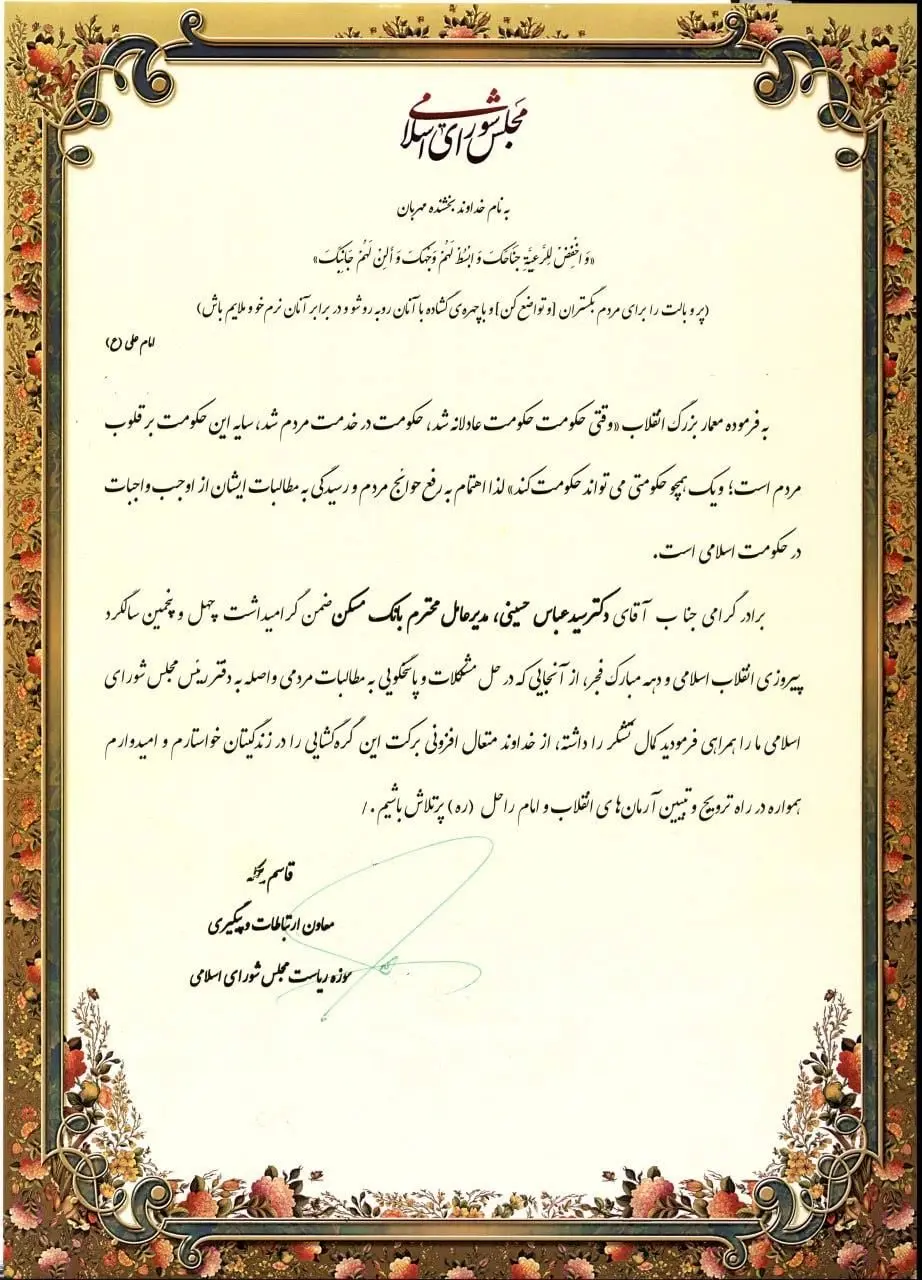 مجلس شورای اسلامی
به نام خداوند بخشنده مهربان
«وَ اخْفِضْ لِلرَّعِیَّةِ جَنَاحَکَ وَ ابْسُطْ لَهُمْ وَجْهَکَ وَ أَلِنْ لَهُمْ جَانِبَکَ»
(پر و بالت را برای مردم بگستران [و تواضع کن] و با چهره‌ی گشاده با آنان روبه رو شو و در برابر آنان نرم خو و ملایم باش)
امام علی (ع)
به فرموده معمار بزرگ انقلاب «وقتی حکومت حکومت عادلانه شد، حکومت در خدمت مردم شد، سایه این حکومت بر قلوب
مردم است؛ و یک همچو حکومتی می تواند حکومت کند» لذا اهتمام به رفع حوائج مردم و رسیدگی به مطالبات ایشان از اوجب واجبات
در حکومت اسلامی است.
برادر گرامی جناب آقای دکتر سید عباس حسینی، مدیرعامل محترم بانک مسکن ضمن گرامیداشت چهل و پنجمین سالگرد
پیروزی انقلاب اسلامی و دهه مبارک فجر، از آنجایی که در حل مشکلات و پاسخگویی به مطالبات مردمی واصله به دفتر رئیس مجلس شورای
اسلامی ما را همراهی فرمودید کمال تشکر را داشته، از خداوند متعال افزونی برکت این گره گشایی را در زندگیتان خواستارم و امیدوارم
همواره در راه ترویج و تبیین آرمان‌های انقلاب و امام راحل (ره) پرتلاش باشیم ./
قاسم
معاون ارتباطات و پیگیری
حوزه ریاست مجلس شورای اسلامی